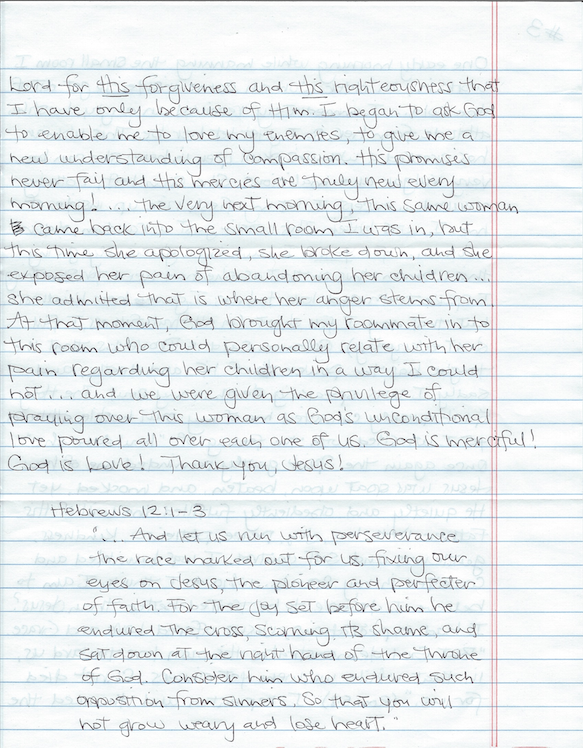 Lord for His forgiveness and His righteousness that
I have only because of Him. I began to ask God
to enable me to love my enemies, to give me a
new understanding of compassion. His promises
never fail and His mercies are truly new every
morning! ... The very next morning, this same woman
came back into the small room I was in, but
this time she apologized, she broke down, and she
exposed her pain of abandoning her children...
she admitted that is where her anger stems from.
At that moment, God brought my roommate in to
this room who could personally relate with her
pain regarding her children in a way I could
not... and we were given the privilege of
praying over this woman as God's unconditional
love poured all over each one of us. God is merciful!
God is Love! Thank you, Jesus!
Hebrews 12:1-3
"... And let us run with perseverance
the race marked out for us, fixing our
eyes on Jesus, the pioneer and perfecter
of faith. For the joy set before him he
endured the cross, scorning its shame, and
sat down at the right hand of the throne
of God. Consider him who endured such
opposition from sinners, so that you will
not grow weary and lose heart."